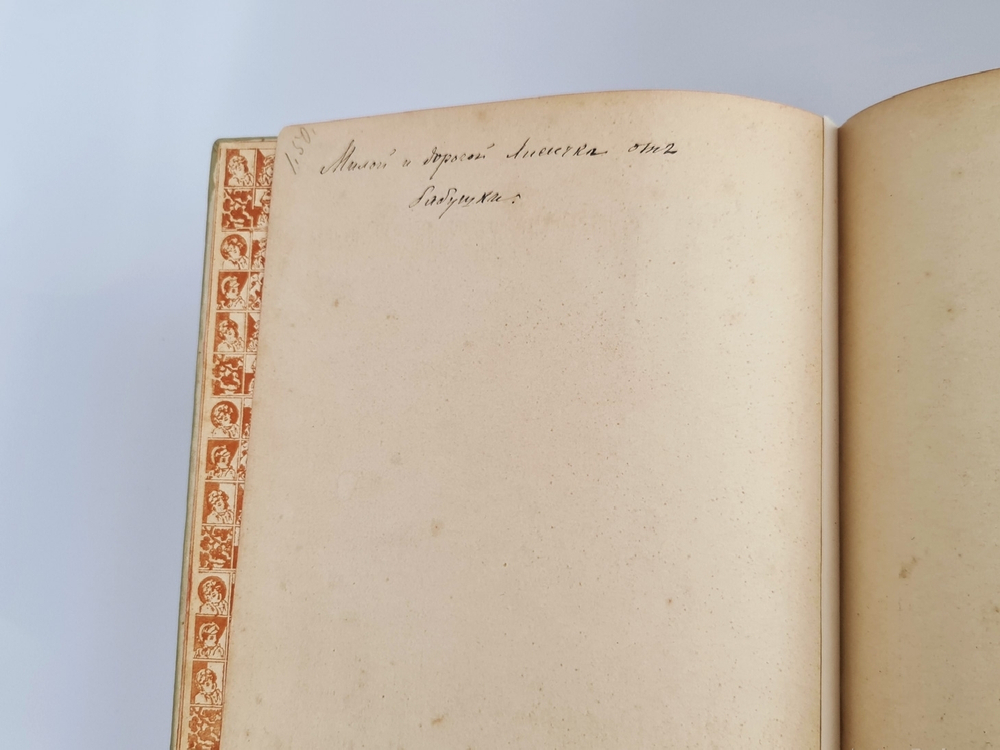 1.50.
Милой и дорогой Лизочкѣ отъ
бабушки.